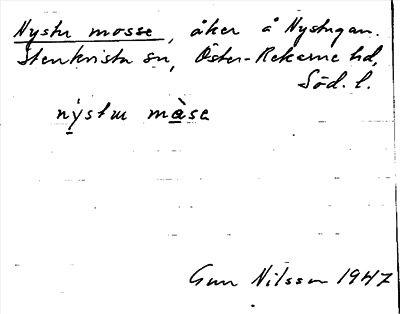 Nystu mosse, åker å Nystugan.
Stenkvista sn, Öster-Rekarne hd,
Söd. l.
nystɯ màse
Gun Nilsson 1947